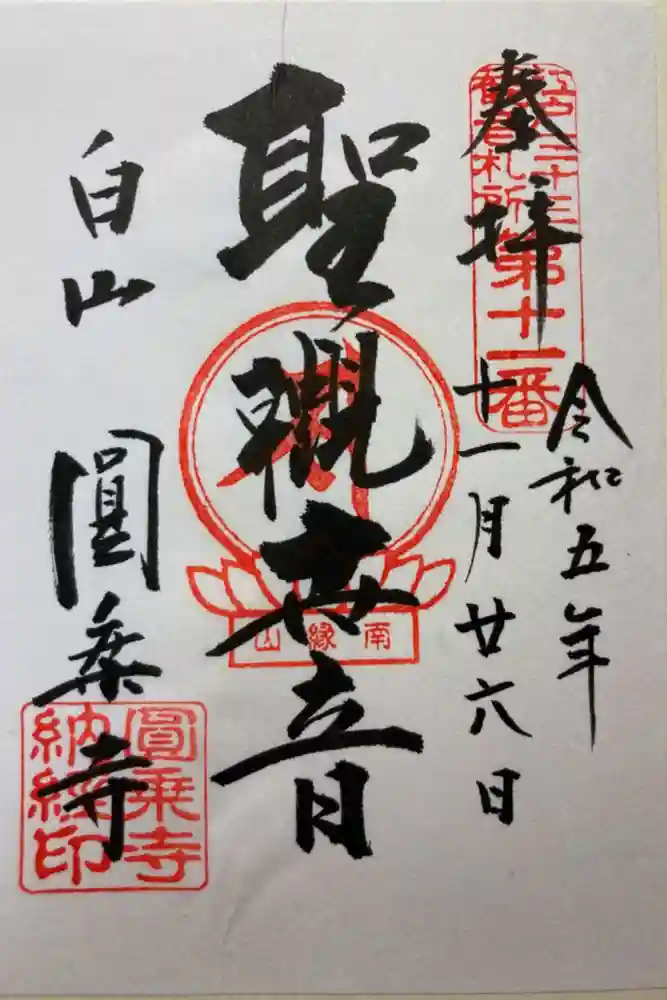 奉拝
江戸三十三
観音札所第十一番
令和五年
十一月廿六日
聖観世音
南縁山
白山
圓乗寺
圓乗寺
納経印